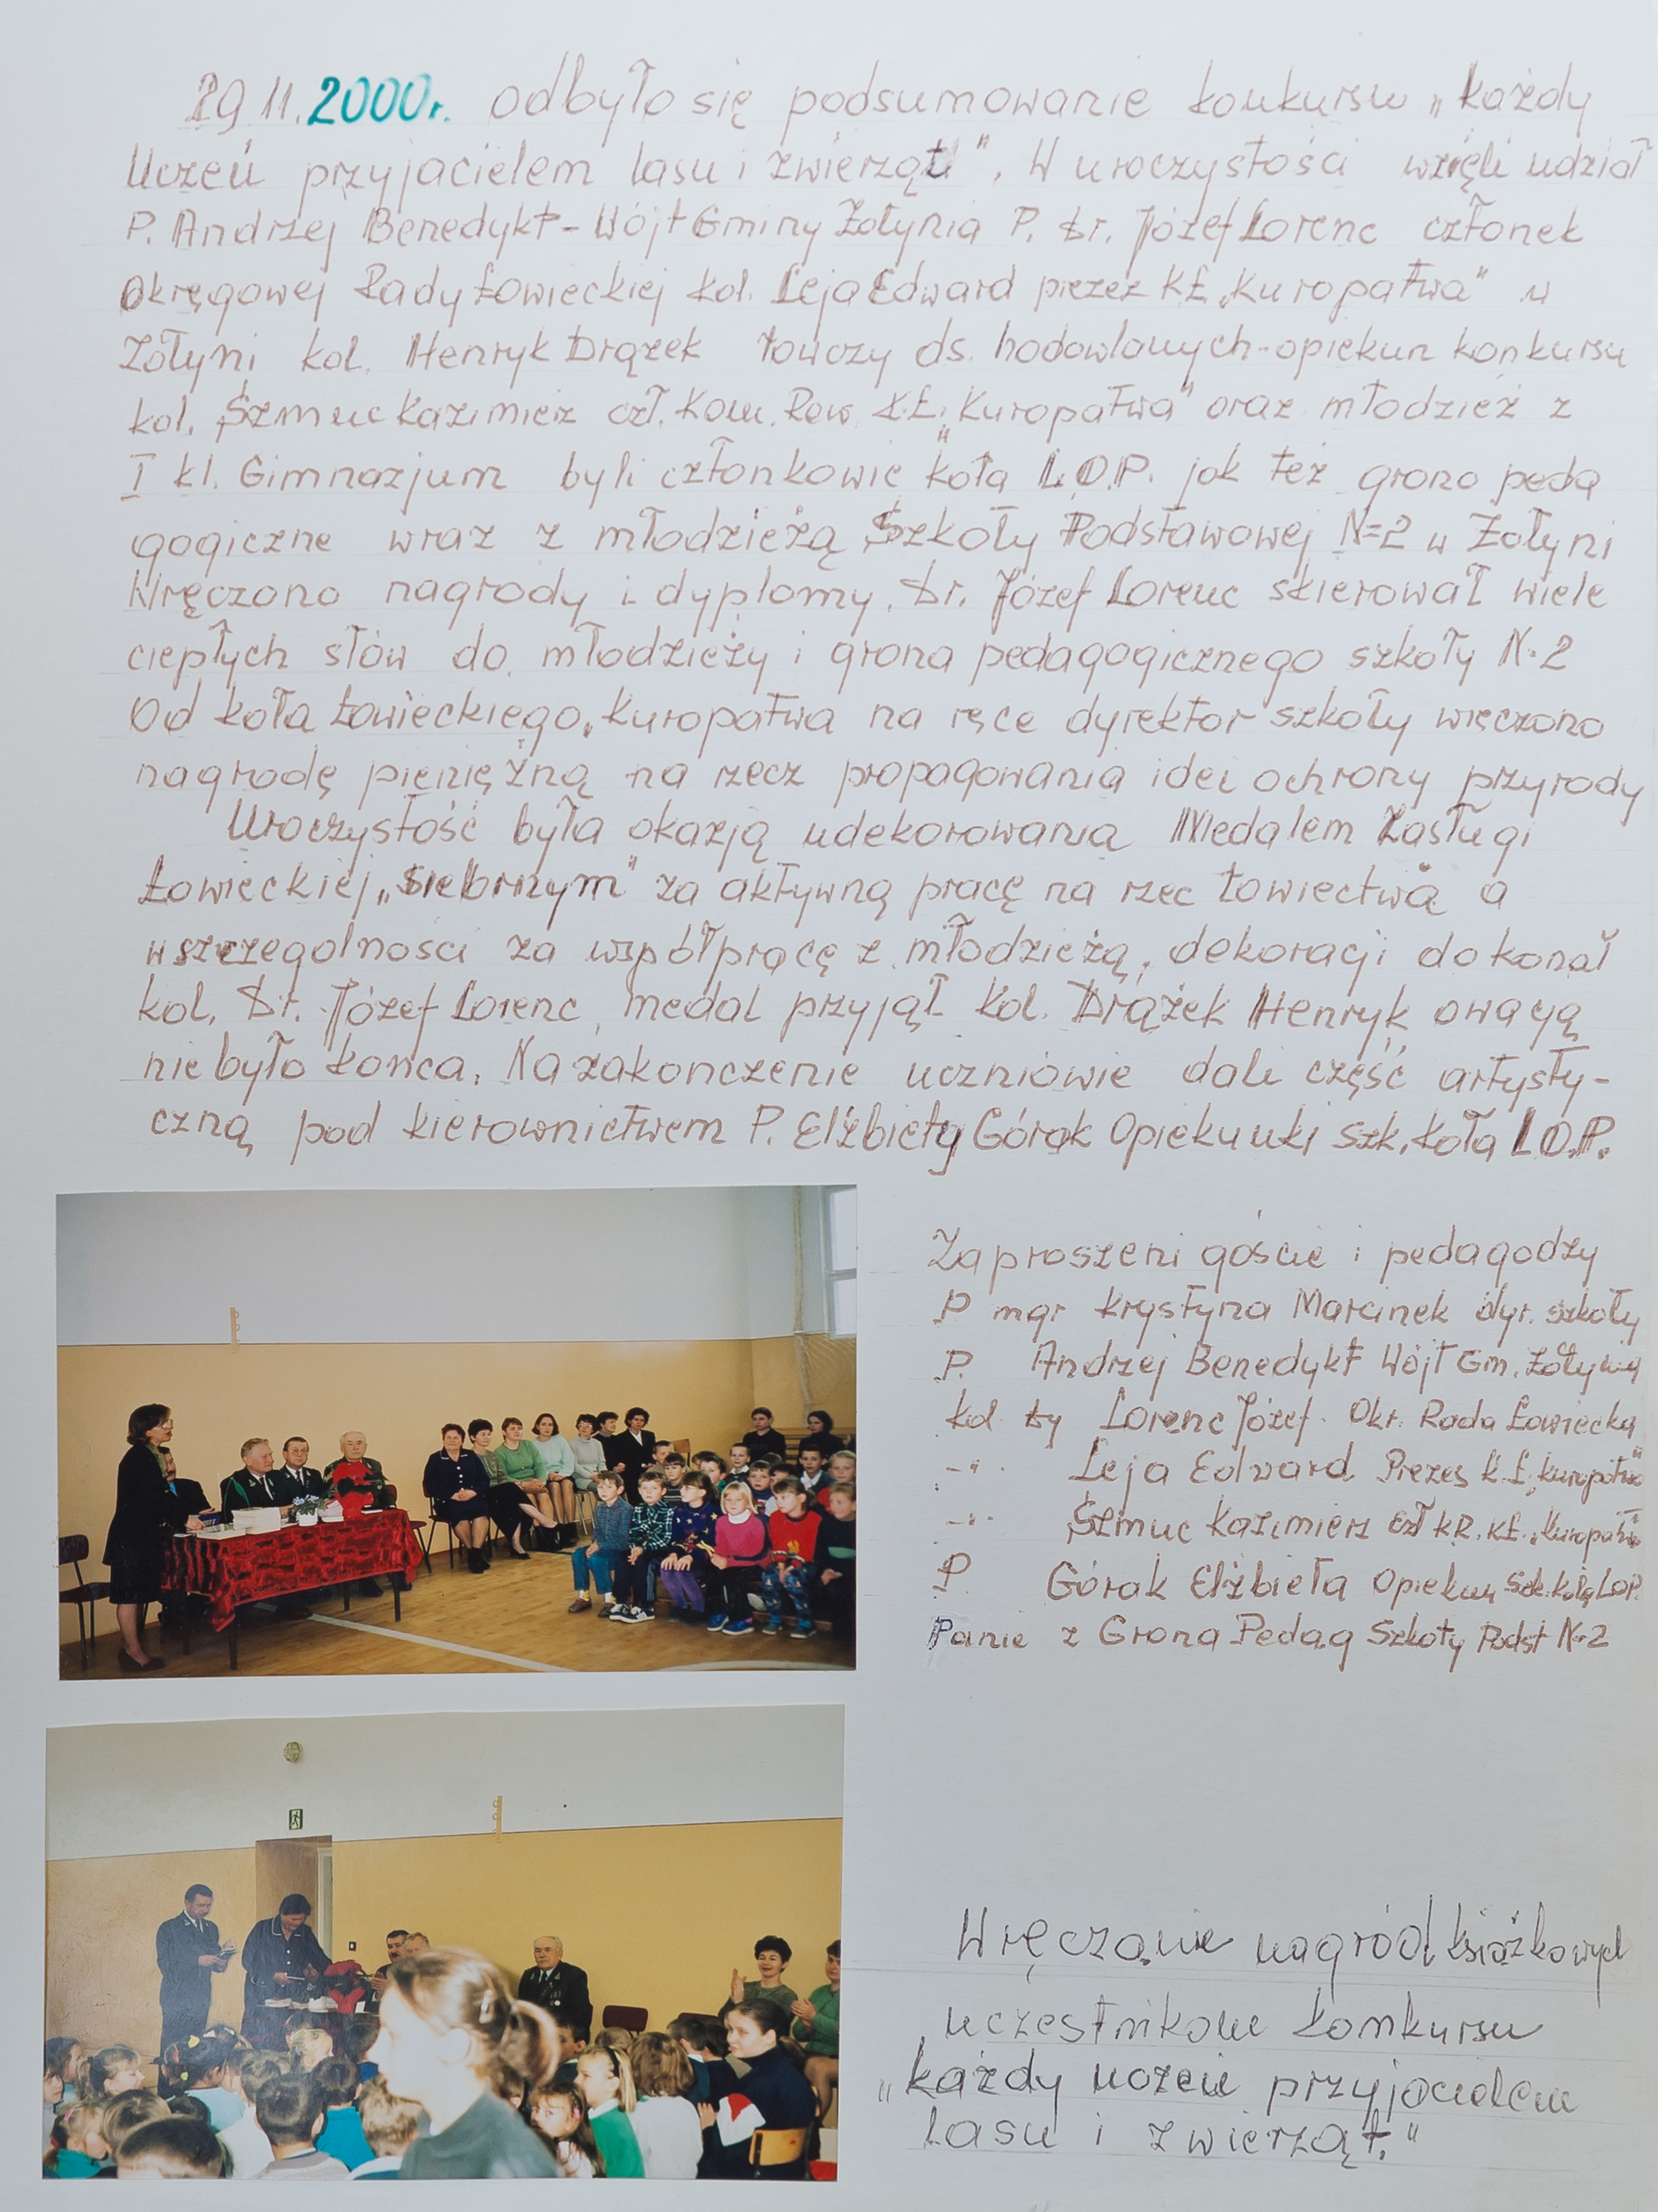 29 11. 2000r. odbyło się podsumowanie konkursu „Każdy
Uczeń przyjacielem lasu i zwierząt". W uroczystości wzięli udział
P. Andrzej Benedykt - Wójt Gminy Żołynia P. Dr. Józef Lorenc członek
Okręgowej Rady Łowieckiej kol. Leja Edward prezez K.Ł. „Kuropatwa" w
Żołyni kol. Henryk Drążek łowczy ds. hodowlanych - opiekun konkursu
kol. Szmuc Kazimierz czł. Kom. Rew. K.Ł. „Kuropatwa" oraz młodzież z
I kl. Gimnazjum byli członkowie koła L.O.P. jak też grono peda
gogiczne wraz z młodzieżą Szkoły Podstawowej N=2 w Żołyni
Wręczono nagrody i dyplomy. Dr. Józef Lorenc skierował wiele
ciepłych słów do młodzieży i grona pedagogicznego szkoły N.2
Od koła Łowieckiego „Kuropatwa na ręce dyrektor szkoły wręczono
nagrodę pieniężną na rzecz propagowania idei ochrony przyrody
Uroczystość była okazją udekorowania Medalem Zasługi
Łowieckiej „Srebrnym" za aktywną pracę na rzec łowiectwa a
w szczegolnosci za współpracę z młodzieżą, dekoracji dokonał
kol. Dr. Józef Lorenc, medal przyjął kol. Drążek Henryk owacją
nie było końca. Na zakonczenie uczniowie dali część artysty-
czną pod kierownictwem P. Elżbiety Górak Opiekunki Szk. Koła L.O.P.
Zaproszeni goście i pedagodzy
P mgr Krystyna Marcinek dyr. szkoły
P. Andrzej Benedykt Wójt Gm. Żołynia
kol. Lorenc Józef. Okr. Rada Łowiecka
-"- Leja Edward Prezes K.Ł. „Kuropatwa"
-"- Szmuc Kazimierz Czł K.R. K.Ł. „Kuropatwa"
P. Górak Elżbieta Opiekun Szk. Koła LOP.
Panie z Grona Pedag Szkoły Podst N-2
Wręczanie nagród książkowych
uczestnikom konkursu
„każdy uczeń przyjacielem
lasu i zwierząt."